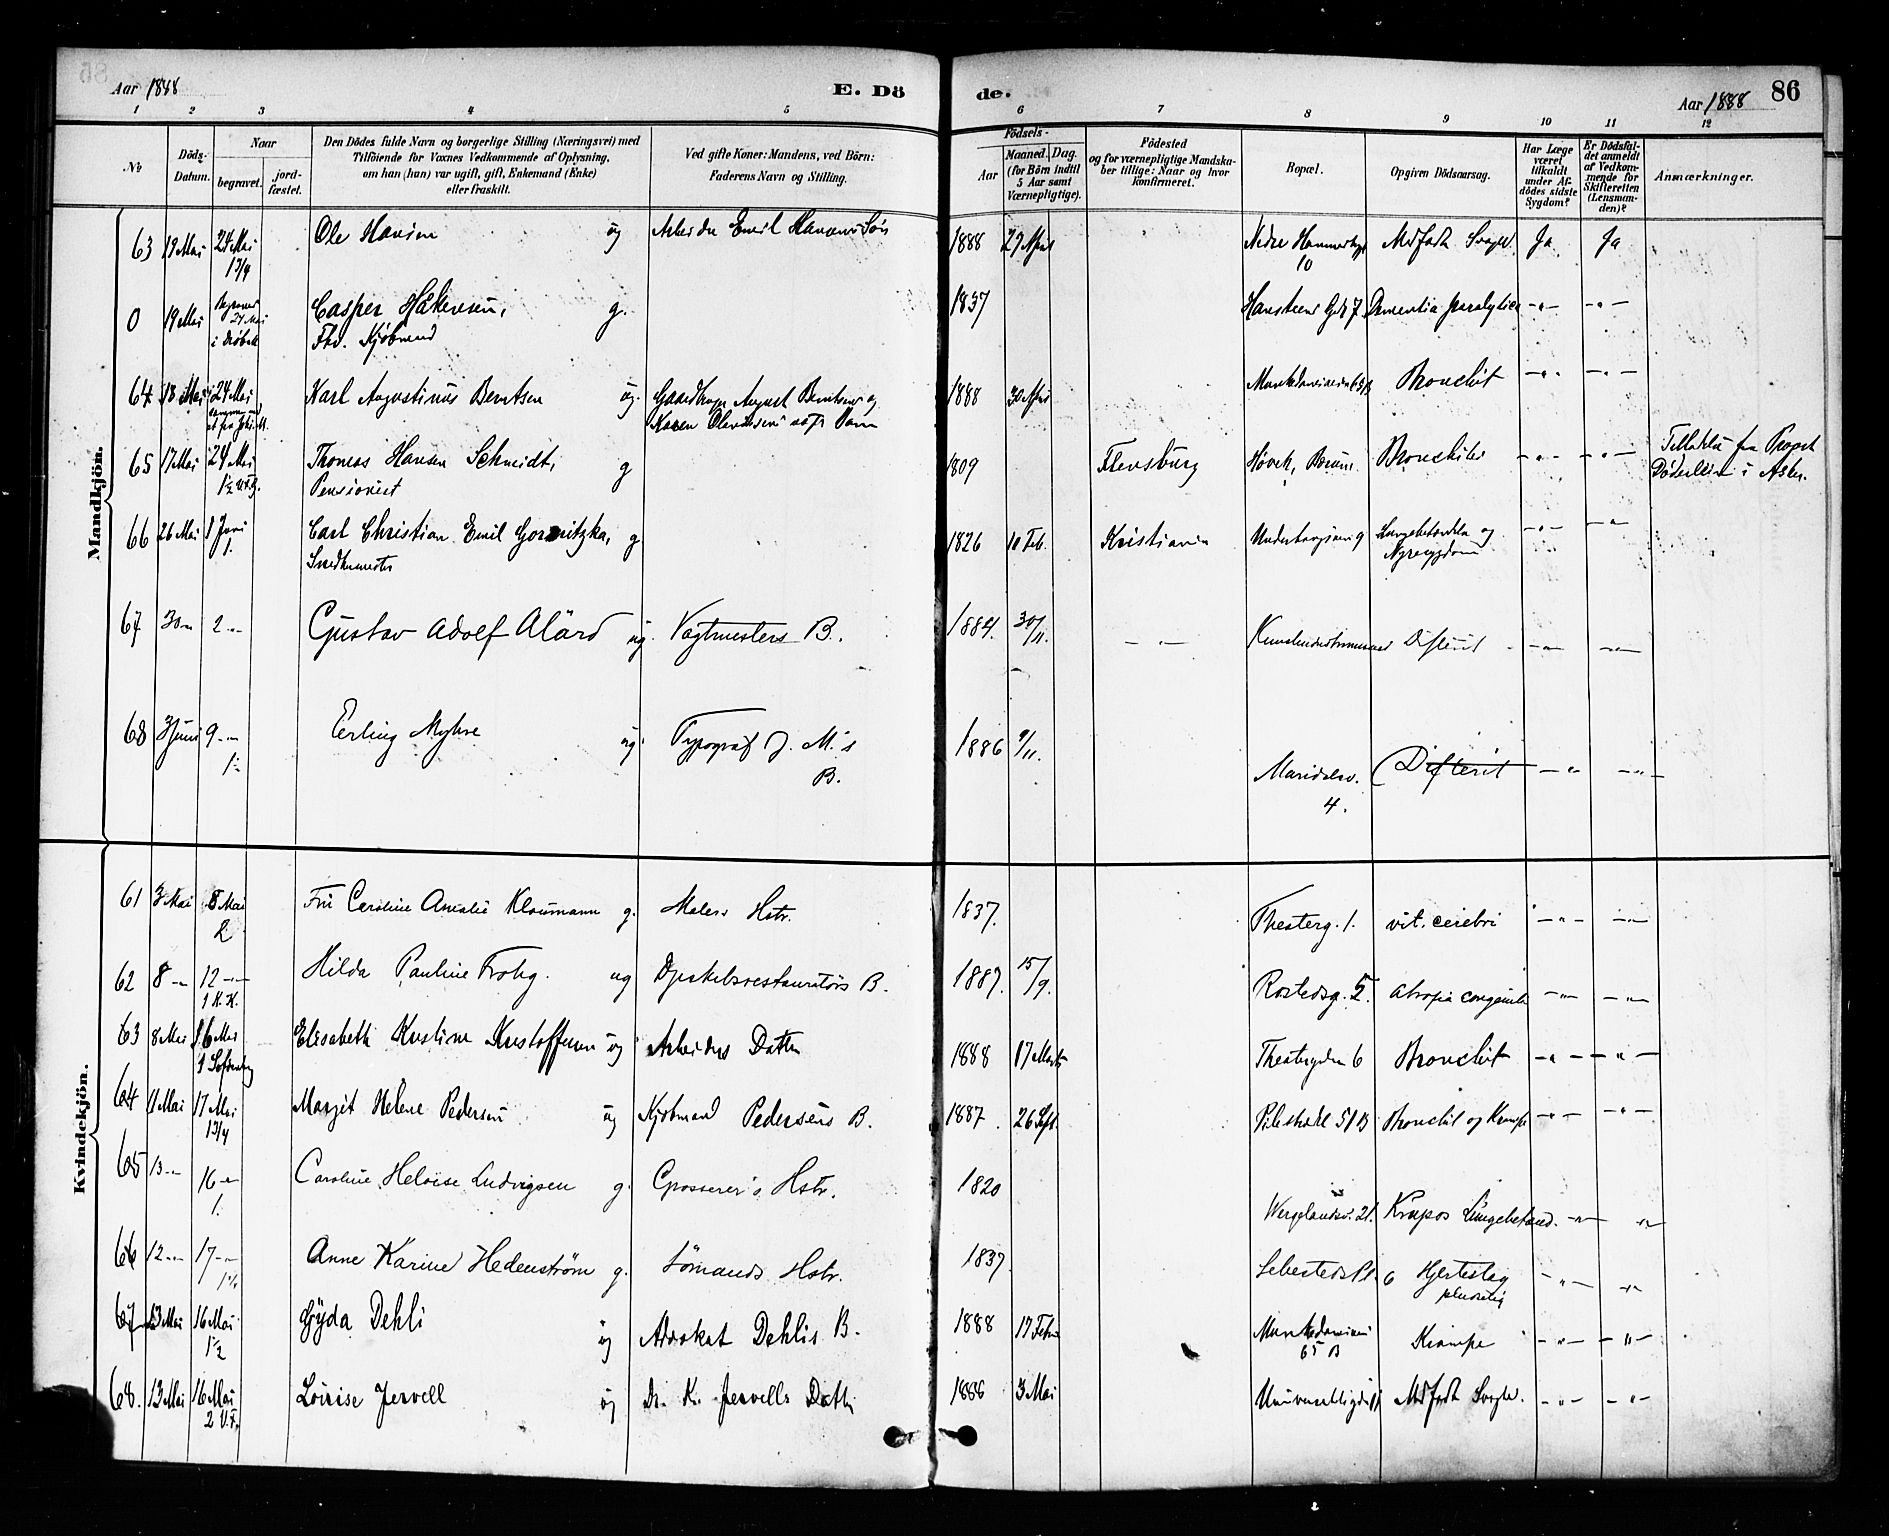 Aar 1888
E. Dö
de.
Aar 1888
86
1 2 3 4 5 6 7 8 9 10 11 12
No
Döds-Datum.
Naar
begravet.
jord-fæstet.
Den Dödes fulde Navn og borgerlige Stilling (Næringsvei) med
Tilföiende for Voxnes Vedkommende af Oplysning,
om han (hun) var ugift, gift, Enkemand (Enke)
eller fraskilt.
Ved gifte Koner: Mandens, ved Börn:
Faderens Navn og Stilling.
Födsels-
Aar
Maaned. Dag.
(for Börn indtil
5 Aar samt
Værnepligtige).
Födested
og for værnepligtige Mandska-
ber tillige: Naar og hvor
konfirmeret.
Bopæl.
Opgiven Dödsaarsag.
Har Læge
været
tilkaldt
under Af-
dödes sidste
Sygdom?
Er Dödsfal-
det anmeldt
af Vedkom-
mende for
Skifteretten
(Lensman-
den)?
Anmærkninger.
Mandkjön.
63 19 Mai 24 Mai Ole Hansen ug Arbeider Emil Hansens Søn 1888 29 April Nedre 10 Medfødt Svaghed Ja Ja
1 3/4
0 19 Mai 24 Mai Casper Håkensen, g. 1837 Hansteens Gd 7 Dementia paralytica -"- -"-
i Drøbak Fhv. Kjøbmand
64 18 Mai 24 Mai Karl Augustinus Berntsen ug. August Berntsens og 1888 30 April Munkedamsveien 65 B Bronchit -"- -"-
Karen
65 17 Mai 24 Mai Thomas Hansen Schmidt, g 1809 Flensburg Høvik, Bærum Bronchitis -"- -"- fra Provst
Pensionist i Asker.
66 26 Mai 1 Juni Carl Christian Emil Gornitzka, g 1826 10 Feb. Kristiania 9 Lungebetændelse og -"- -"-
1. Snedkermester Nyresygdom
67 30 -"- 2 -"- Gustav Adolf Alård ug. Vagtmesters B. 1884. 30/11. -"- Difterit -"- -"-
68 3 Juni 9 -"- Erling Myhre ug. Typograf J. M.'s 1886 9/11. Maridalsv. Difterit -"- -"-
B. 4.
Kvindekjön.
61 3 Mai 8 Mai Fru Caroline Amalie Klaumann g. Malers Hstr. 1837. Theaterg. 1. vit. cerebri -"- -"-
2
62 8 -"- 12 -"- Hilda Pauline ug B. 1887. 15/9. Rostedsg. 5. Atrofia congenita -"- -"-
1 K. K.
63 8 Mai 16 Mai Elisabeth Kristine Kristoffersen ug Arbeiders Datter 1888 17 Marts Theatergaden 6 Bronchit -"- -"-
64 11 Mai 17 Mai Margit Helene Pedersen ug Kjøbmand Pedersens B. 1887. 26 Sept. Pilestrædet 51 B Bronchit og Krampe -"- -"-
1 3/4
65 13 -"- 16 -"- Caroline Heloise Ludvigsen g. Grosserer's Hstr. 1820 Wergelandsv. 21. Krupøs Lungebetænd. -"- -"-
1.
66 12 -"- 17 -"- Anne Karine Hedenström g. Sømands Hstr. 1837. Sehesteds Pl. 6 Hjerteslag -"- -"-
67 13 Mai 16 Mai Gyda Dehli ug Advokat Dehlis B. 1888 17 Febr Munkedamsveien Krampe -"- -"-
1 1/2 65 B
68. 13 Mai 16 Mai Louise Jervell ug Dr. K. Jervells Datter 1888 3 Mai Universitetsgd 11 Medfødt Svagh. -"- -"-
2 V.F.